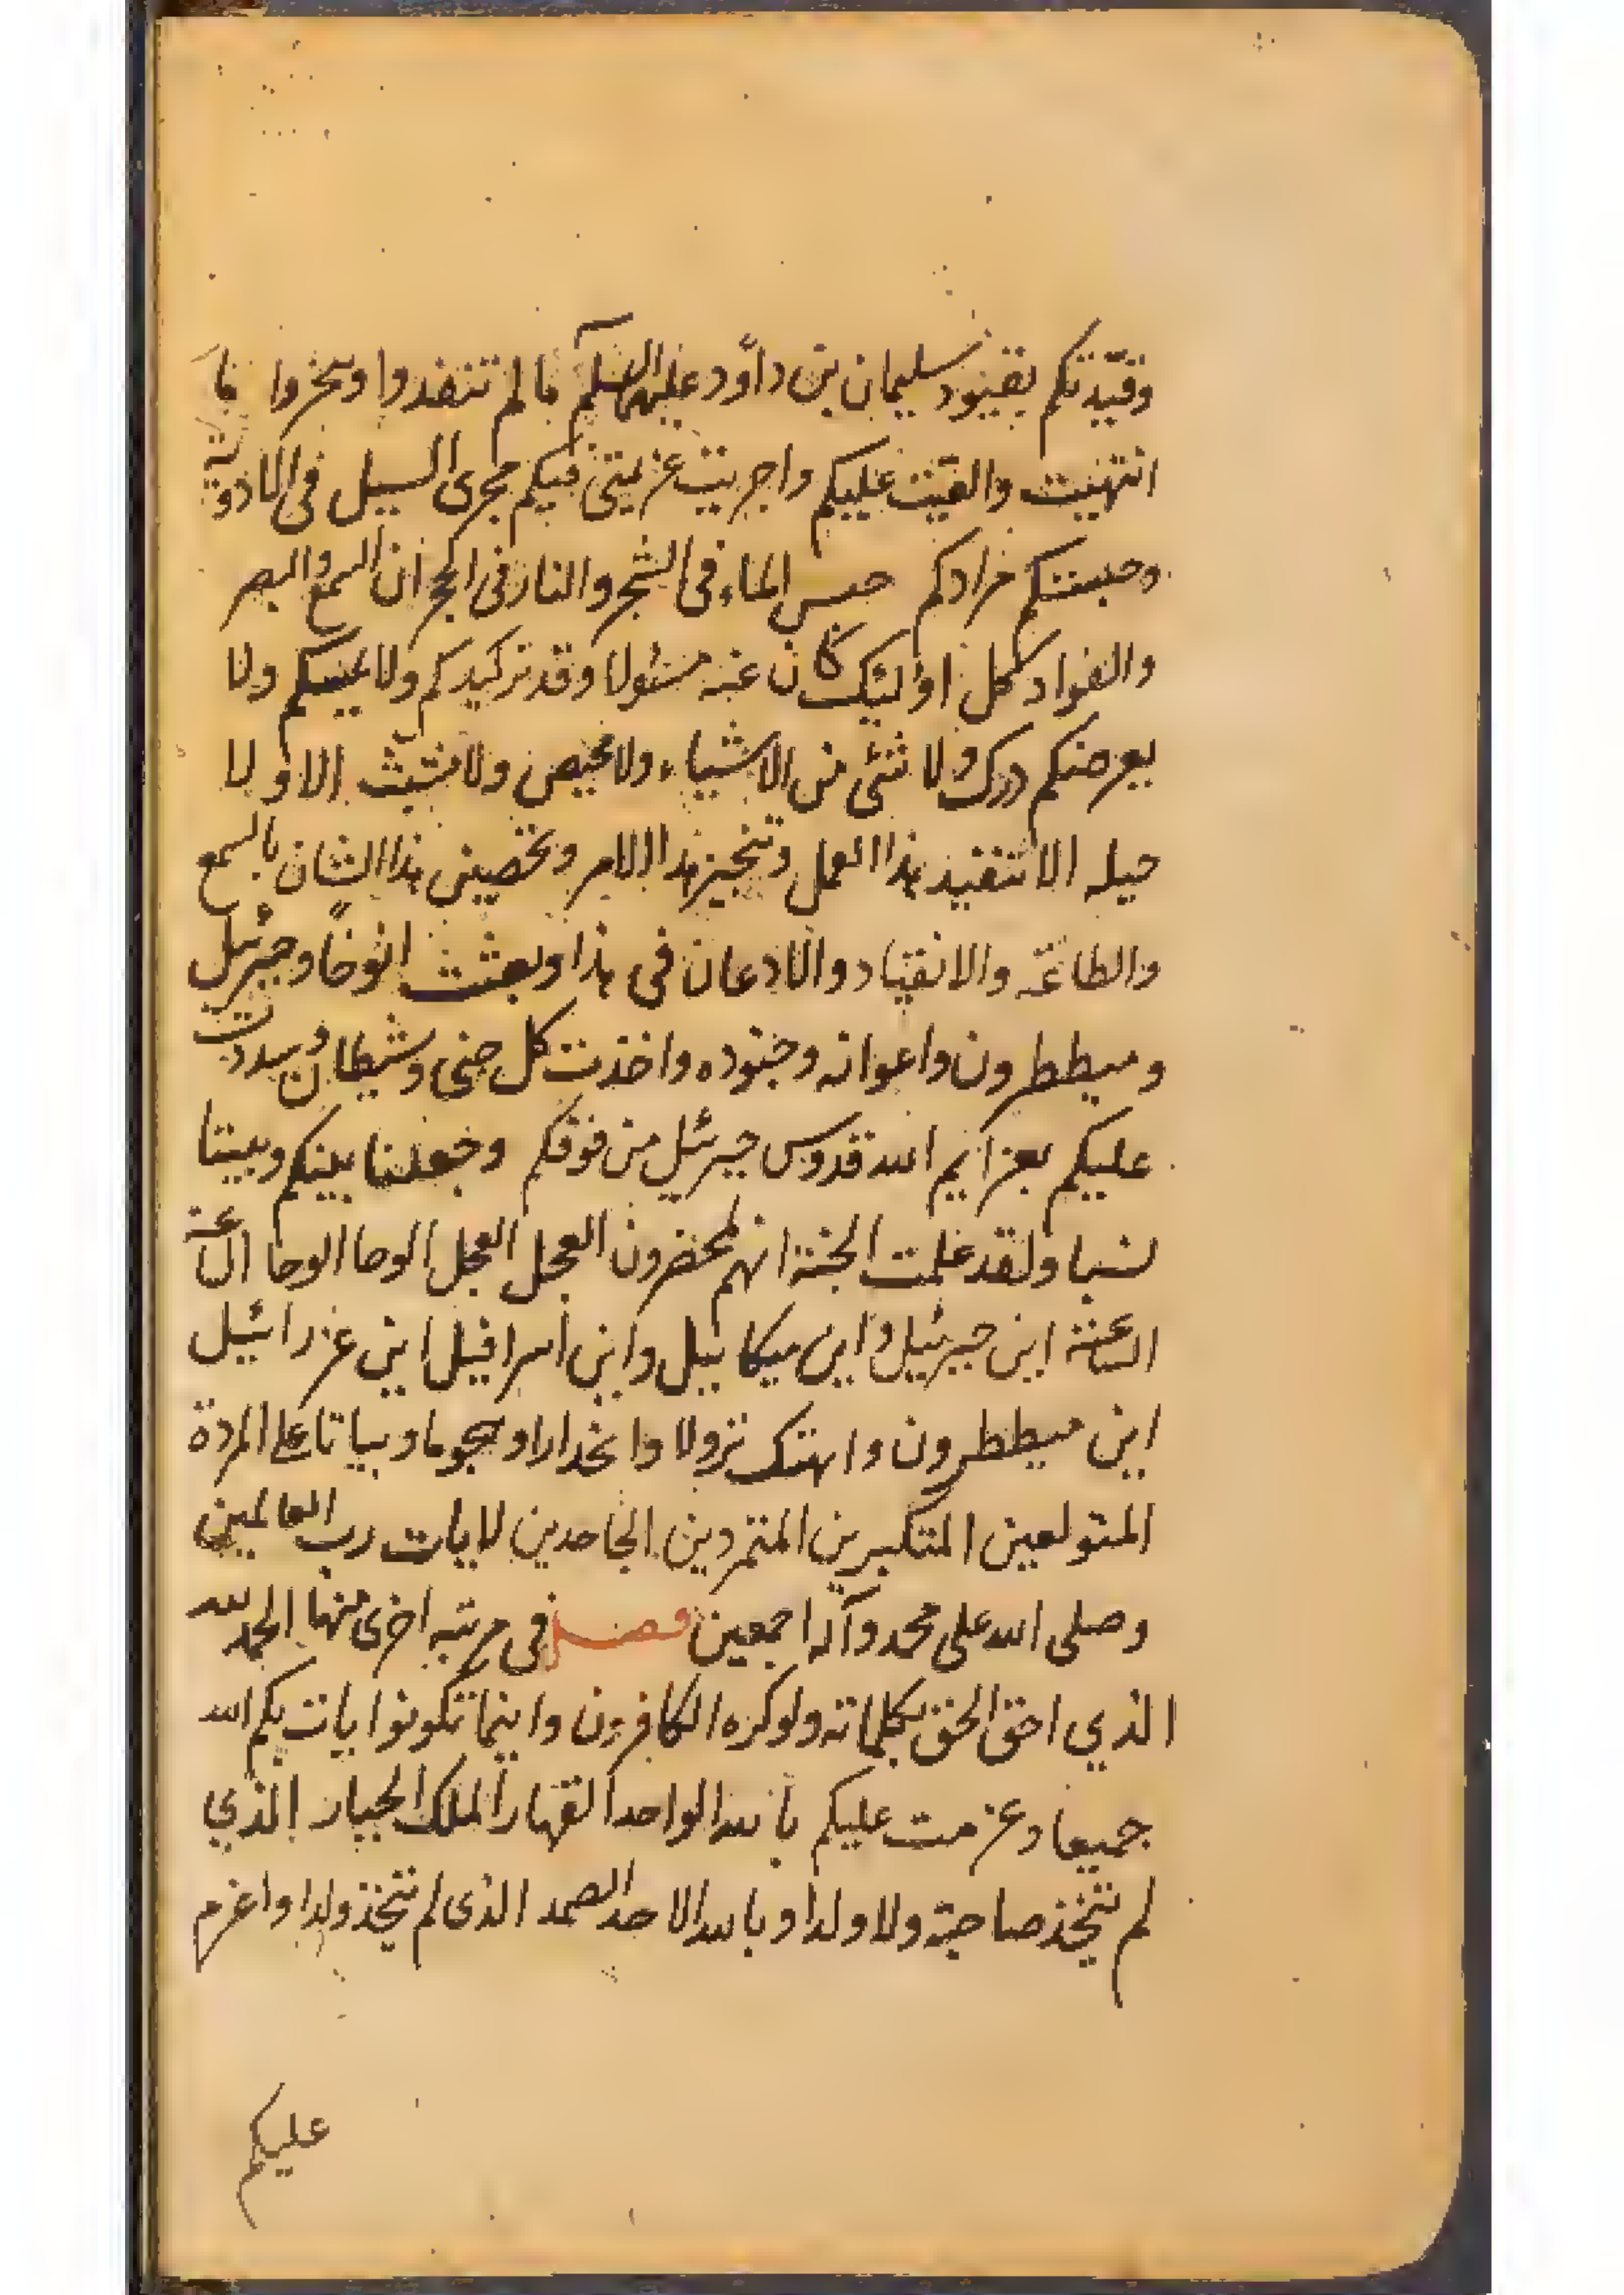 وقيّدتكم بقيود سليمان بن داوٗد عليهما السلم ما لم تنفذوا وتنجزوا ما
انتهيت والقيت عليكم واجريت عزيمتى فيكم مجرى السيل فى
وحبستكم مرادكم حبس الماء فى الشجر والنار فى الحجر ان السمع والبصر
والفواد كل اولئك كان عنه مسئولا وقد ولا ولا
درك ولا شئ من الاشياء ولا محيص ولا الا ولا
حيله الا تنفيذ هذا العمل وتنجيز هذا الامر هذا الشان بالسمع
والطاعة والانقياد والاذعان فى هذا وبعثت وجبرئيل
وميططرون واعوانه وجنوده واخذت كل جنى وشيطان وسددت
عليكم بعزايم الله قدوس جبرئيل من فوقكم وجعلنا بينكم وبيننا
نسبا ولقد علمت الجنة انهم لمحضرون العجل العجل الوحا الوحا الساعة
الساعة اين جبرئيل واين ميكائيل واين اسرافيل اين عزرائيل
اين ميططرون نزولا وانحدارا وهجوما وبياتا على المردة
المتولعين المتكبرين المتمردين الجاحدين لايات رب العالمين
وصلى الله على محمد وآله اجمعين فصل فى مرتبه اخرى منها الحمد لله
الذي احق الحق بكلماته ولو كره الكافرون واينما تكونوا يات بكم الله
جميعا وعزمت عليكم بالله الواحد القهار الملك الجبار الذي
لم يتخذ صاحبة ولا ولدا وبالله الاحد الصمد الذى لم يتخذ ولدا واعزم
عليكم